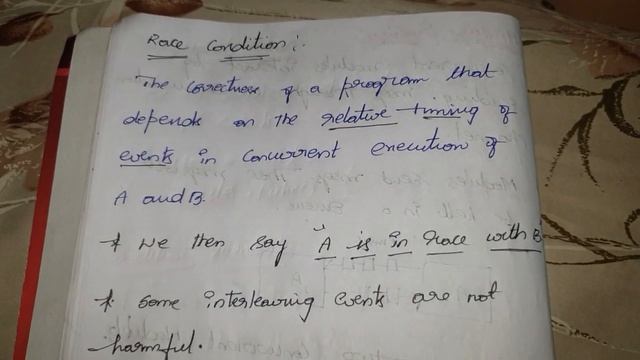 Race Condition :.
The correctness of a program that
depends on the relative timing of
events in concurrent execution of
A and B.
* We then say "A is in race with B
* Some interleaving events are not
harmful.